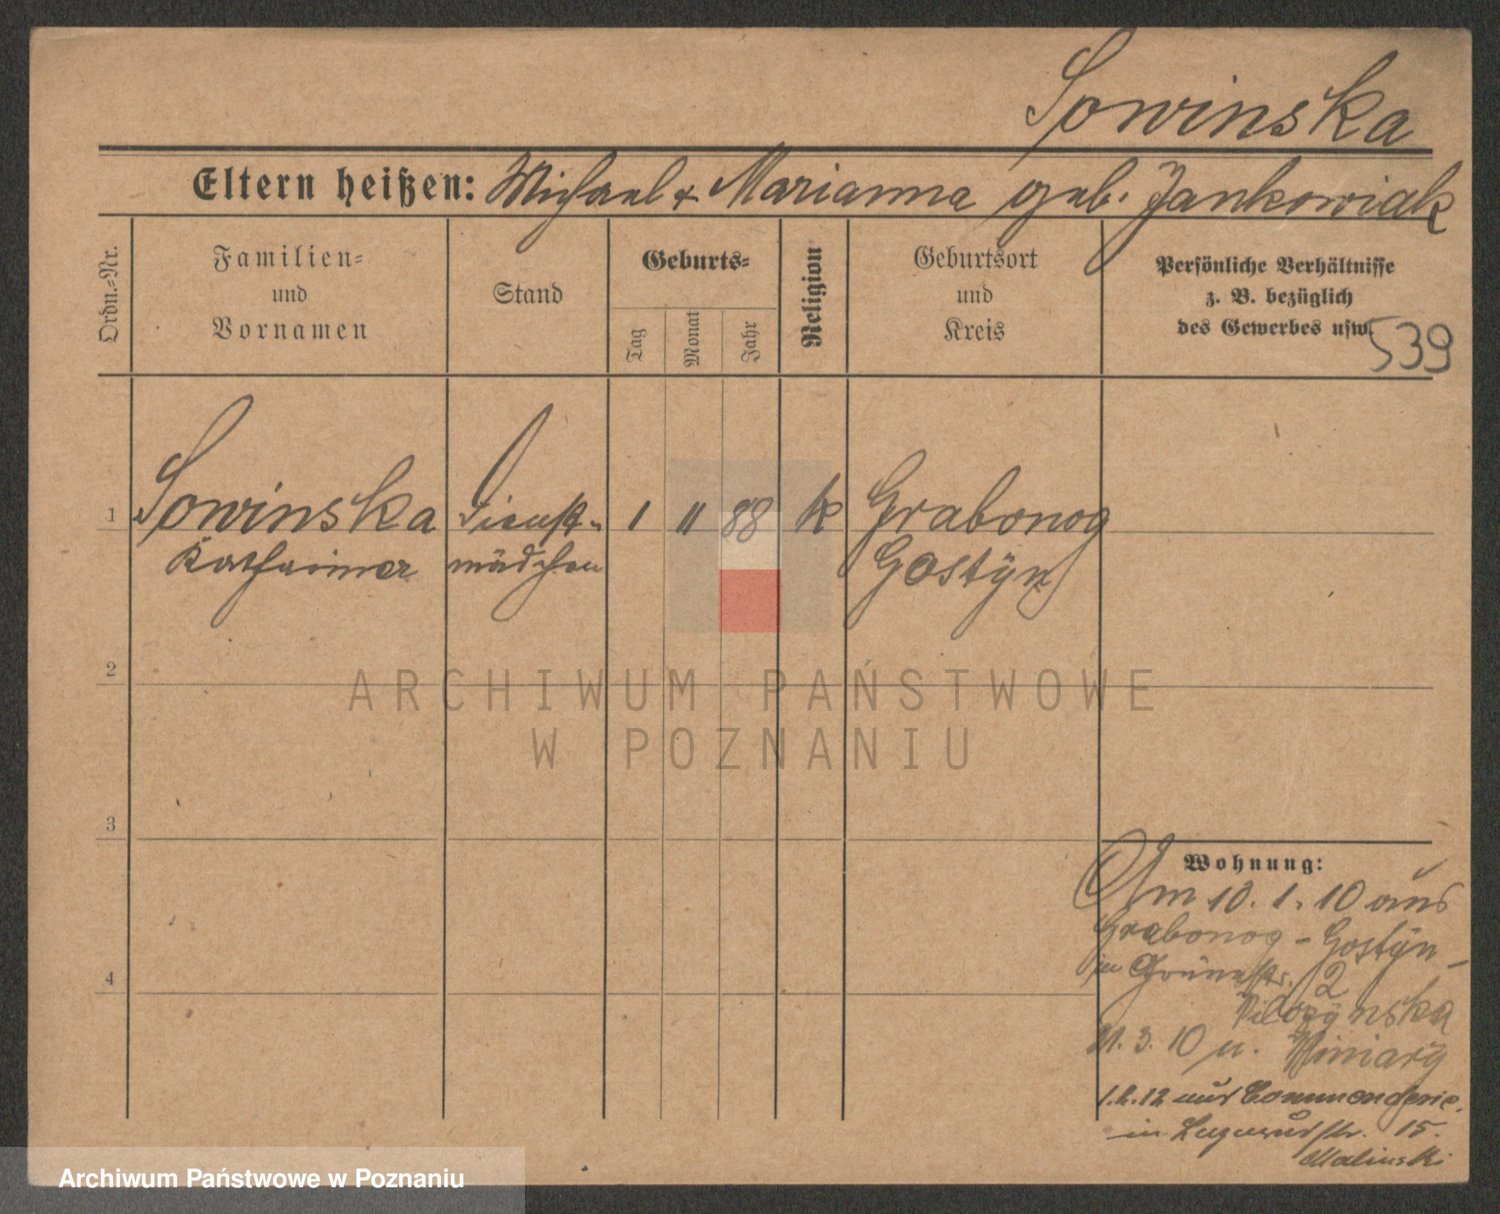 Sowinska
Eltern heißen: Michael & Marianna geb. Jankowiak
Ordn.-Nr.
Familien-
und
Vornamen
Stand
Geburts-
Tag
Monat
Jahr
Religion
Geburtsort
und
Kreis
Persönliche Verhältnisse
z. B. bezüglich
des Gewerbes usw.
539
1 Sowinska Dienst- 1 11 88 k Grabonog
Katharina mädchen Gostÿn
2
3
4
ARCHIWUM PAŃSTWOWE
W POZNANIU
Wohnung:
Am 10. 1. 10 aus
Grabonog - Gostÿn
in Grünestr. 2
21. 3. 10 n. Winiary
1.2.12 aus Commenderie
in 15.
Malinski
Archiwum Państwowe w Poznaniu